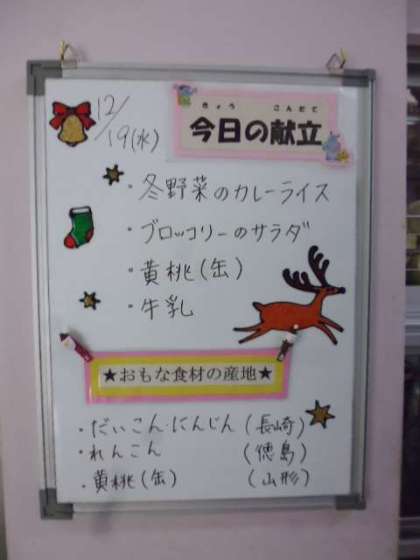 12/19(水)
きょう こんだて
今日の献立
・冬野菜のカレーライス
・ブロッコリーのサラダ
・黄桃(缶)
・牛乳
★おもな食材の産地★
・だいこん・にんじん(長崎)
・れんこん(徳島)
・黄桃(缶)(山形)